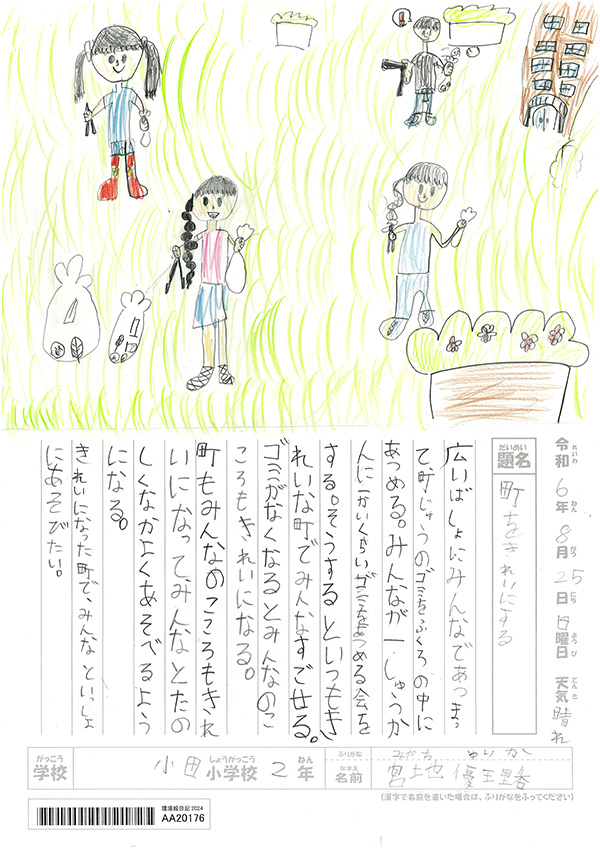 れいわ ねん がつ にち ようび てんき
令和6年8月25日日曜日 天気 晴れ
だいめい
題名
町をきれいにする
広いばしょにみんなであつまっ
て、町じゅうのゴミをふくろの中に
あつめる。みんなが一しゅうか
んに一かいくらいゴミをあつめる会を
する。そうするといつもき
れいな町でみんなすごせる。
ゴミがなくなるとみんなのこ
ころもきれいになる。
町もみんなのこころもきれ
いになって、みんなとたの
しくなかよくあそべるよう
になる。
きれいになった町で、みんなといっしょ
にあそびたい。
がっこう しょうがっこう ねん
学校 小田小学校2年
ふりがな みやち ゆりか
なまえ
名前 宮地 優里香
(漢字で名前を書いた場合は、ふりがなをふってください)
環境絵日記2024
AA20176